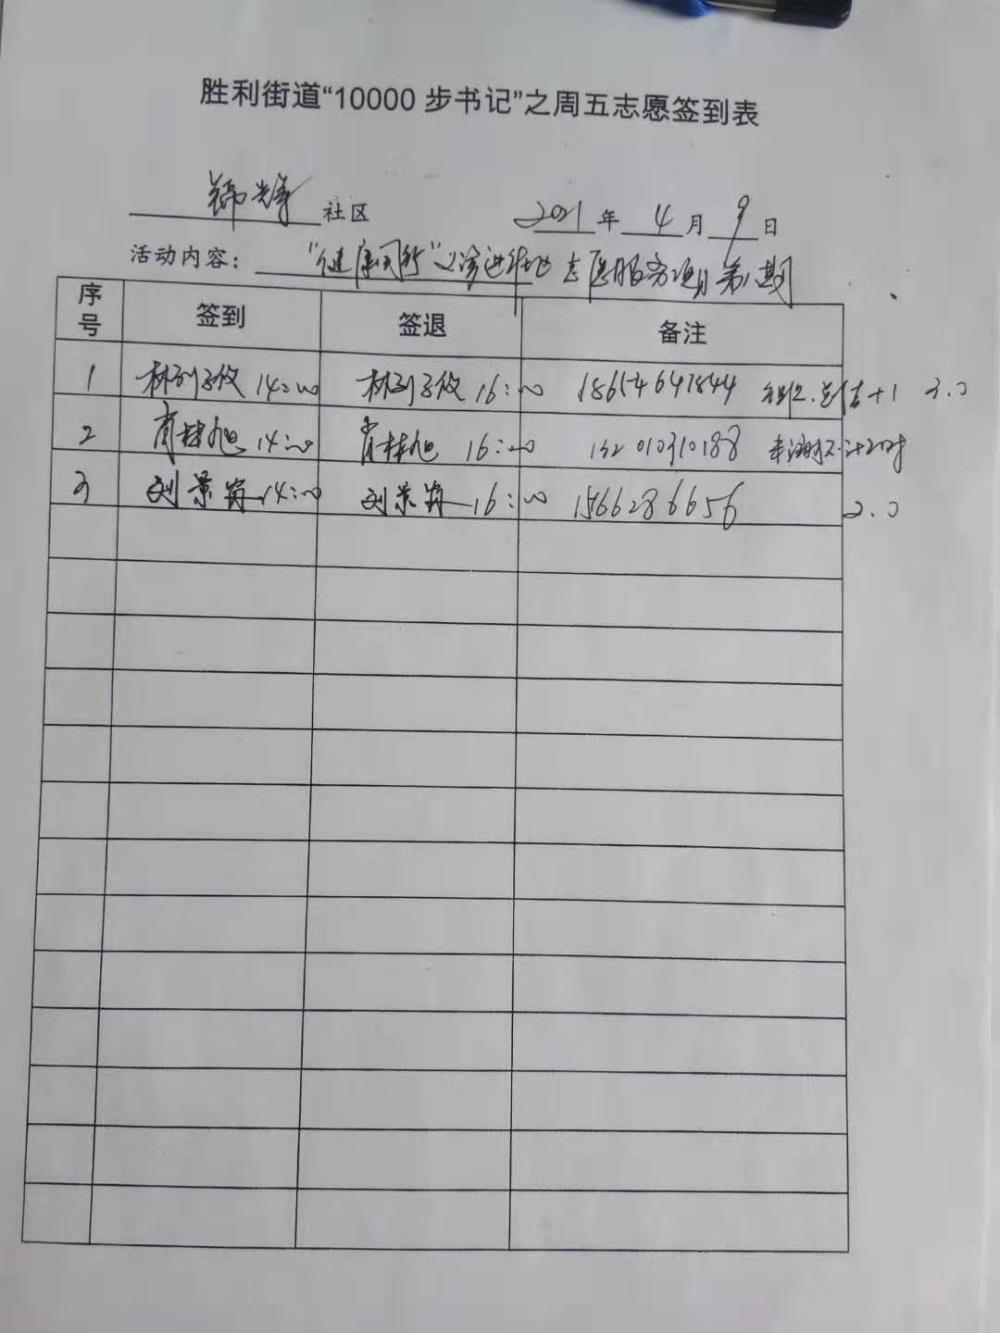 胜利街道“10000 步书记”之周五志愿签到表
锦华 社区 2021 年 4 月 9 日
活动内容: “健康同行”义诊进驻地志愿服务项目第八期
序号 签到 签退 备注
1 14:00 16:00 18654641844 组织、总结+1 3.0
2 肖林旭 14:00 肖林旭 16:00 132010310188
3 刘景 14:00 刘景 16:00 1566286656 2.0